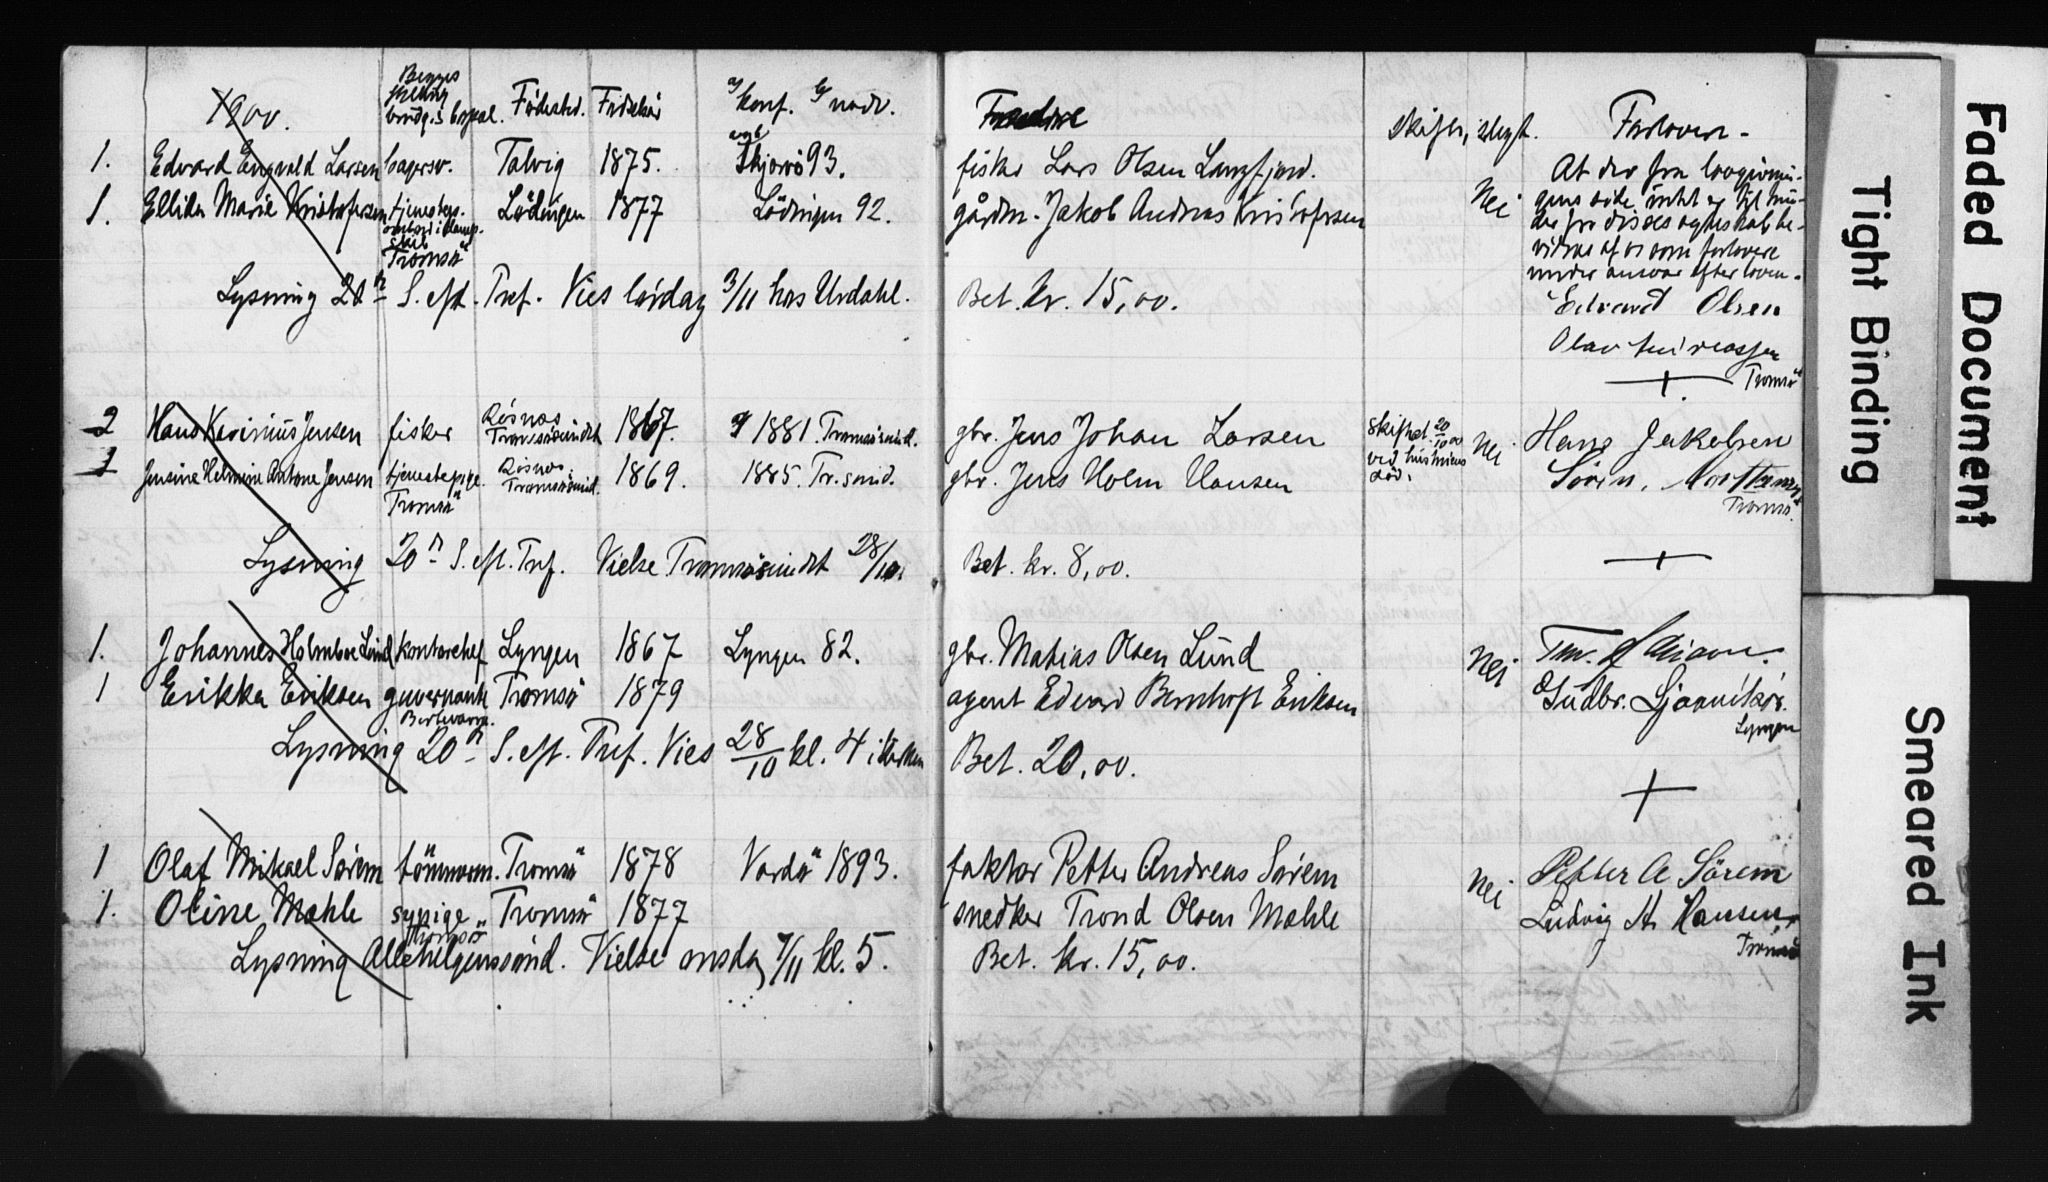 1900. Begges stilling bvndq. s bopæl. Födested. Fødselsår a/ konf. b/ nadv. Forældre skifte, slegt. Forlovere -
1. Edvard Engvald Larsen bagersv. Talvig 1875. Skjervö 93. fisker Lars Olsen Langfjord.
1. Ellida Marie Kristofersen tjenestep. ombord i damp- skib Tromsö Lödingen 1877 Lödingen 92. gårdm. Jakob Andreas Kristofersen Nei
At der fra lovgivnin-
gens side intet er til hin-
der for disses egteskab be-
vidnes af os som forlovere
under ansvar efter loven.
Edvard Olsen
Olav Andreassen
Tromsö
Lysning 20de S. eft. Tref. Vies lördag 3/11 hos Urdahl. Bet. kr. 15,00.
2 Hans Karinius Jensen fisker Rösnes Tromsösundet 1867. 1881. Tromsösund. gbr. Jens Johan Larsen skiftet 20/10 00 ved hustruens död. Nei Hans Jakobsen
1 Jensine Helmine Antone Jensen tjenestepige Tromsö Rösnes Tromsösund. 1869. 1885. Tr.sund. gbr. Jens Holm Hansen Sörin.
Tromsö.
Lysning 20de S. eft. Tref. Vielse Tromsösundet 28/10. Bet. kr. 8,00.
1. Johannes Holmboe Lund kontorchef Lyngen 1867 Lyngen 82. gbr. Matias Olsen Lund Nei
1 Erikka Eriksen guvernante Birtavarre. Tromsö 1879 agent Edvard Bernhoft Eriksen Gudbr.
Lyngen
Lysning 20de S. eft. Tref. Vies 28/10 kl. 4 i kirken Bet. 20,00.
1 Olaf Mikael Sørem tömmerm. Tromsö 1878 Vardö 1893. faktor Petter Andreas Sørem Nei Petter A Sörem
1. Oline Mæhle sypige Tromsö Tromsö 1877 snedker Trond Olsen Mæhle Ludvig A. Hansen
Tromsö
Lysning Allehelgenssönd. Vielse onsdag 7/11 kl. 5. Bet. kr. 15,00.
Faded Document
Tight Binding
Smeared Ink